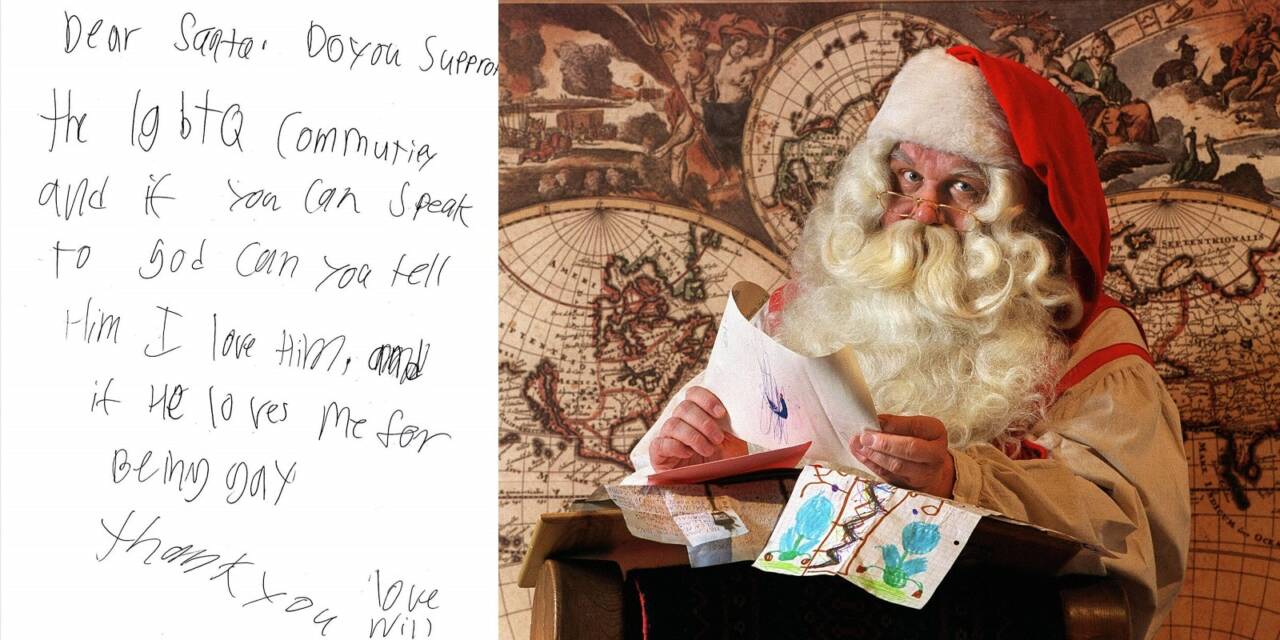 Dear Santa. Do you suppor
the lgbtQ Commuties
and if you can speak
to god can you tell
Him I love Him. and
if He loves Me for
Being gay
thank you
love
Will
SEPTENTRIONALIS